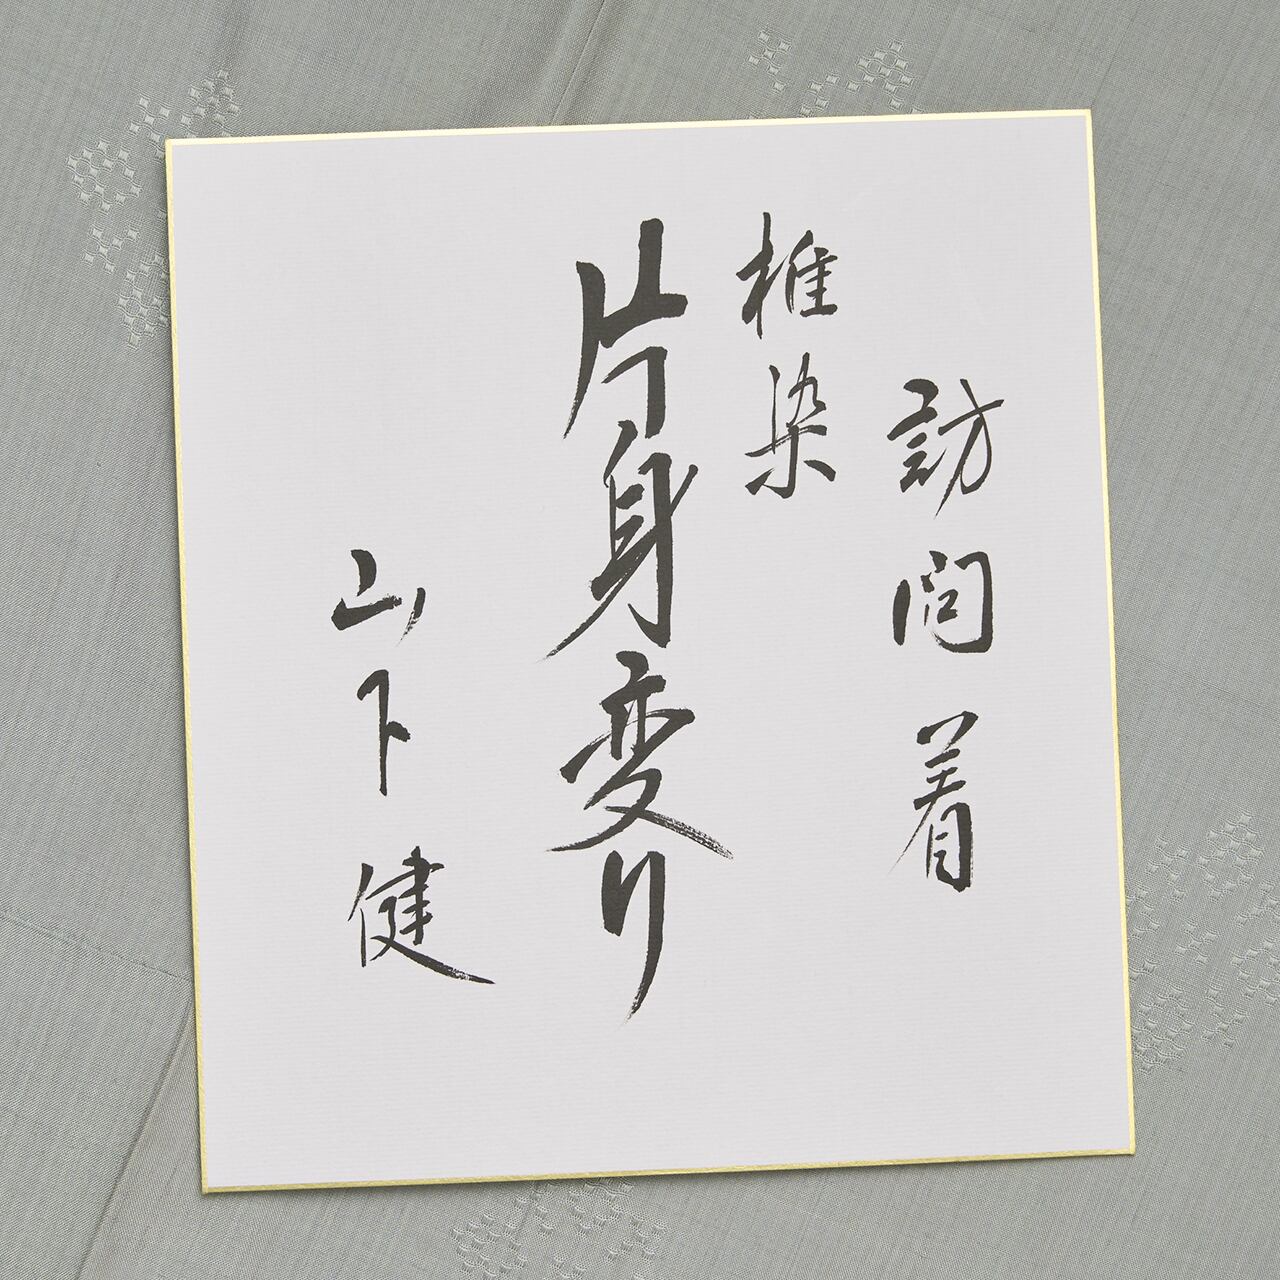 訪問着
椎染
片身変り
山下健